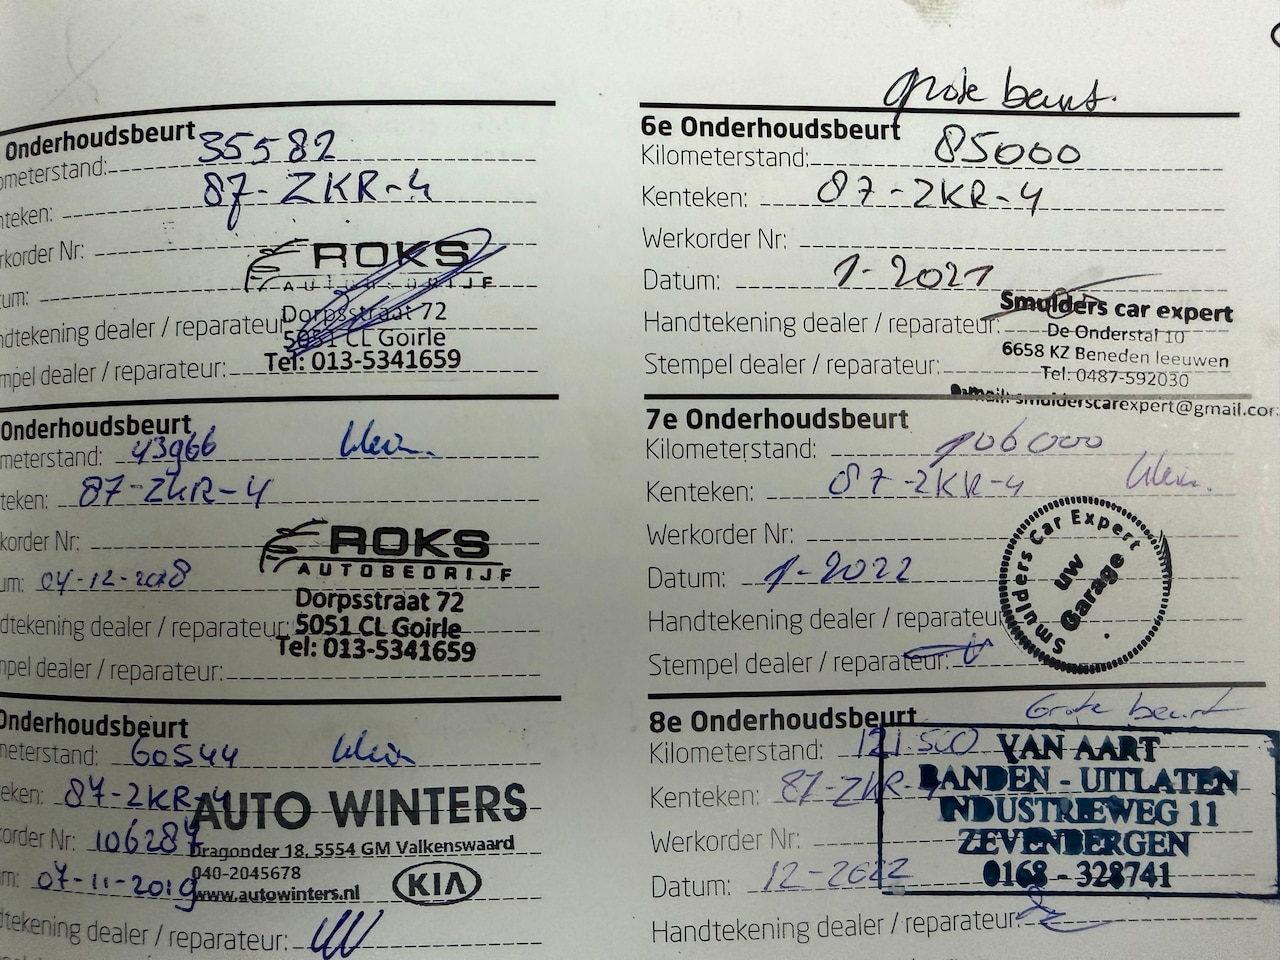 Onderhoudsbeurt
ometerstand: 35582
nteken: 87-ZKR-4
rkorder Nr:
um:
ROKS
AUTOBEDRIJF
Dorpsstraat 72
ndtekening dealer / reparateur:
5051 CL Goirle
Tel: 013-5341659
mpel dealer / reparateur:
Onderhoudsbeurt
meterstand: 43966 klein.
teken: 87-ZKR-4
korder Nr:
um: 04-12-2018
ROKS
AUTOBEDRIJF
Dorpsstraat 72
dtekening dealer / reparateur:
5051 CL Goirle
Tel: 013-5341659
npel dealer / reparateur:
Onderhoudsbeurt
neterstand: 60544 klein
eken: 87-ZKR-4
AUTO WINTERS
order Nr: 106287
Dragonder 18, 5554 GM Valkenswaard
040-2045678
m: 07-11-2019
www.autowinters.nl
KIA
dtekening dealer / reparateur:
grote beurt.
6e Onderhoudsbeurt
Kilometerstand: 85000
Kenteken: 87-ZKR-4
Werkorder Nr:
Datum: 1-2021
Smulders car expert
Handtekening dealer / reparateur:
De Onderstal 10
6658 KZ Beneden leeuwen
Stempel dealer / reparateur:
Tel: 0487-592030
e-mail: smulderscarexpert@gmail.com
7e Onderhoudsbeurt
Kilometerstand: 106000
Kenteken: 87-ZKR-4 klein.
Werkorder Nr:
Datum: 1-2022
Smulders Car Expert
uw
Garage
Handtekening dealer / reparateu
Stempel dealer / reparateur:
Grote beurt
8e Onderhoudsbeurt
Kilometerstand: 121.500
VAN AART
Kenteken: 87-ZKR-4
BANDEN - UITLATEN
INDUSTRIEWEG 11
Werkorder Nr:
ZEVENBERGEN
Datum: 12-2022
0168 - 328741
Handtekening dealer / reparateur: